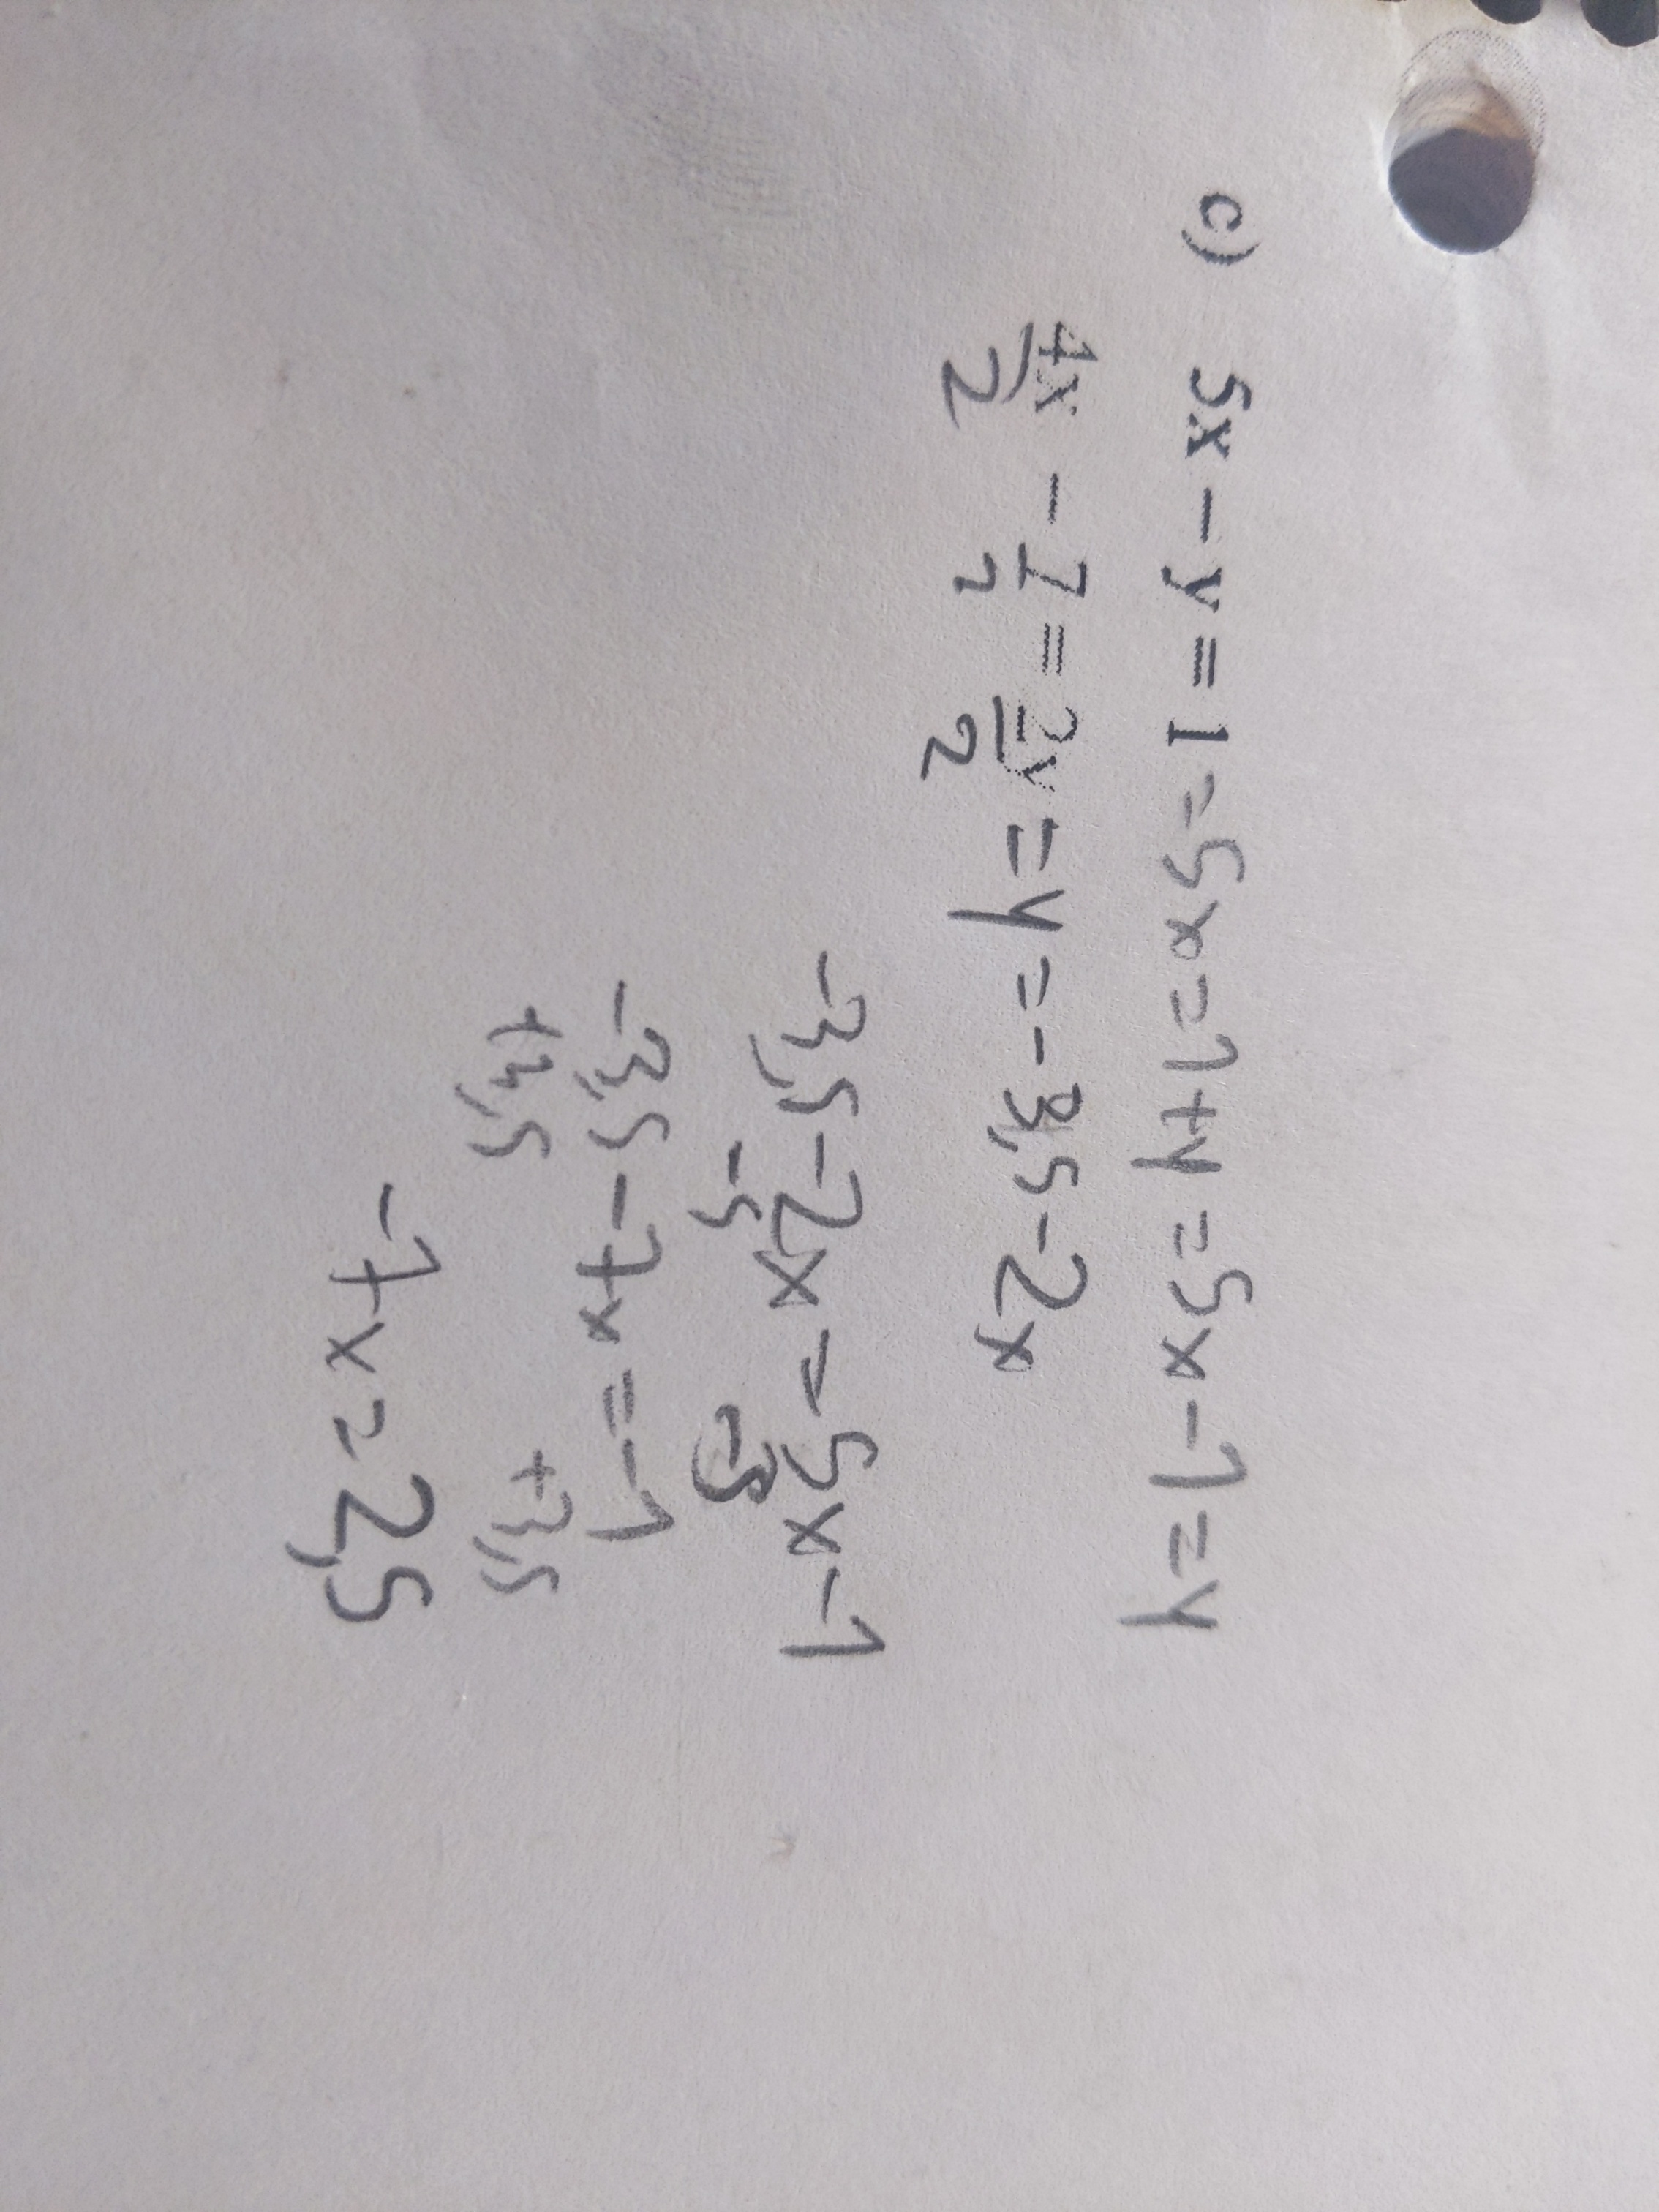 c) 5x - y = 1 = 5x = 1 + y = 5x - 1 = y
4x/2 - 7/2 = 2y/2 = y = -3,5 - 2x
-3,5 - 2x = 5x - 1
-5 -5
-3,5 - 7x = -1
+3,5 +3,5
-7x = 2,5